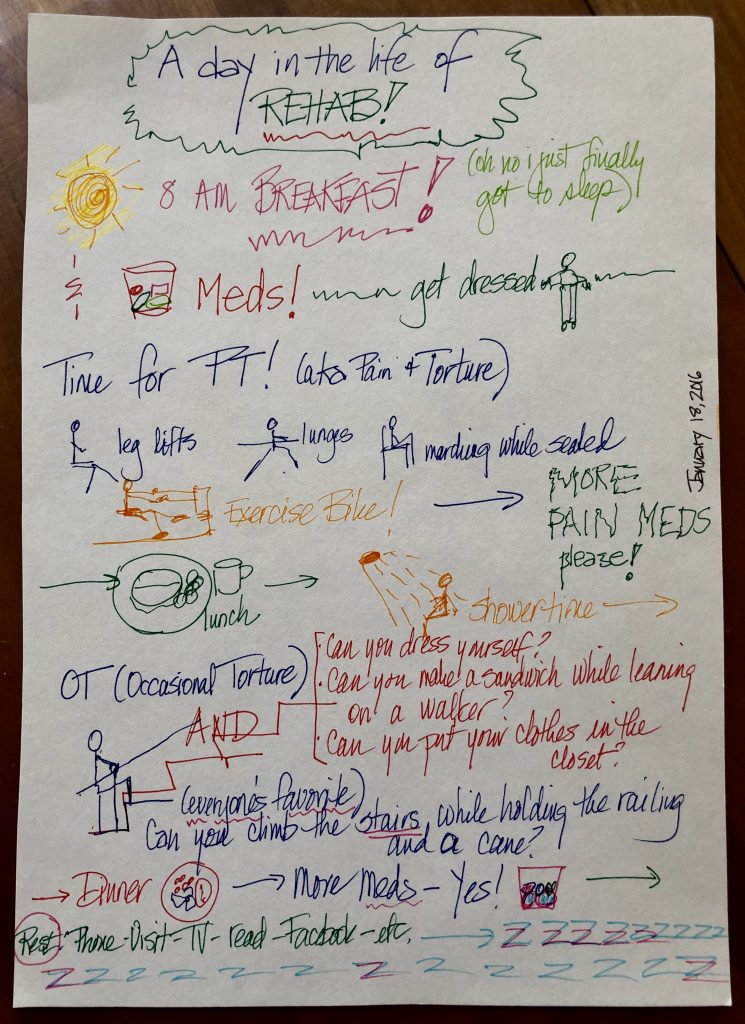 A day in the life of
REHAB!
8 AM BREAKFAST!
(oh no i just finally
got to sleep)
Meds!
get dressed
Time for PT! (aka Pain + Torture)
January 18, 2016
leg lifts
lunges
marching while seated
Exercise Bike!
MORE
PAIN MEDS
please!
lunch
Showertime
OT (Occasional Torture)
• Can you dress yourself?
• Can you make a sandwich while leaning
on a walker?
• Can you put your clothes in the
closet?
AND
(everyone's favorite)
Can you climb the stairs while holding the railing
and a cane?
Dinner
More Meds - Yes!
Rest Phone - Visit - TV - read - Facbook - etc.
Z Z Z Z Z Z Z Z Z Z
Z Z Z Z Z Z Z Z Z Z Z Z Z